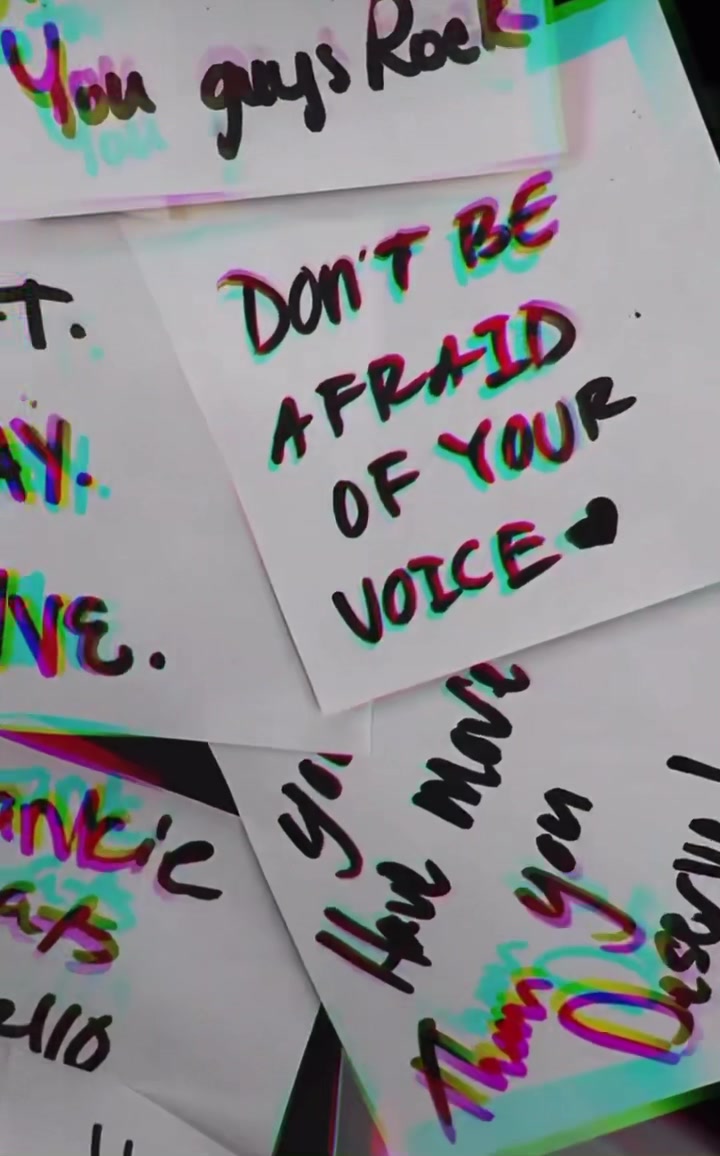 You guys Rock
DON'T BE
AFRAID
OF YOUR
VOICE
T.
AY.
VE.
ankie
ats
ello
You
Have More
Than You
Observe!